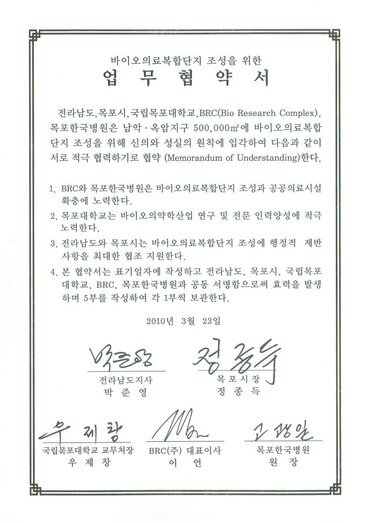 바이오의료복합단지 조성을 위한
업무협약서
전라남도,목포시,국립목포대학교,BRC(Bio Research Complex),
목포한국병원은 남악·옥암지구 500,000㎡에 바이오의료복합
단지 조성을 위해 신의와 성실의 원칙에 입각하여 다음과 같이
서로 적극 협력하기로 협약 (Memorandum of Understanding)한다.
1. BRC와 목포한국병원은 바이오의료복합단지 조성과 공공의료시설
확충에 노력한다.
2. 목포대학교는 바이오의약학산업 연구 및 전문 인력양성에 적극
노력한다.
3. 전라남도와 목포시는 바이오의료복합단지 조성에 행정적 제반
사항을 최대한 협조 지원한다.
4. 본 협약서는 표기일자에 작성하고 전라남도, 목포시, 국립목포
대학교, BRC, 목포한국병원과 공동 서명함으로써 효력을 발생
하며 5부를 작성하여 각 1부씩 보관한다.
2010년 3월 23일
박준영 정종득
전라남도지사 목포시장
박준영 정종득
우제창 고광일
국립목포대학교 교무처장 BRC(주) 대표이사 목포한국병원
우제창 이언 원장